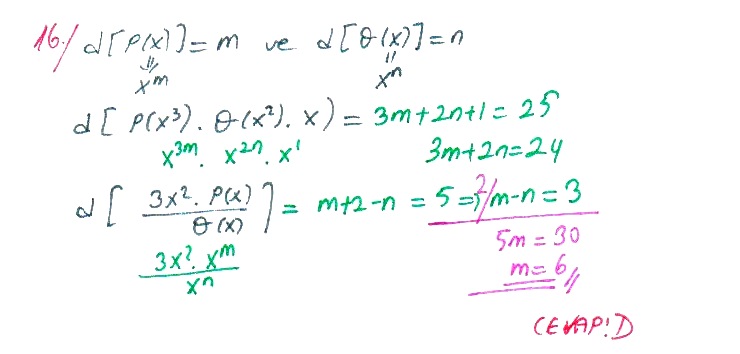 16./ d[P(x)] = m ve d[Q(x)] = n
x^m x^n
d[P(x³).Q(x²).x) = 3m+2n+1 = 25
x^3m. x^2n. x^1 3m+2n=24
d[3x².P(x)/Q(x)] = m+2-n = 5 ⇒ 2/ m-n = 3
3x².x^m/x^n 5m = 30
m = 6 //
CEVAP: D